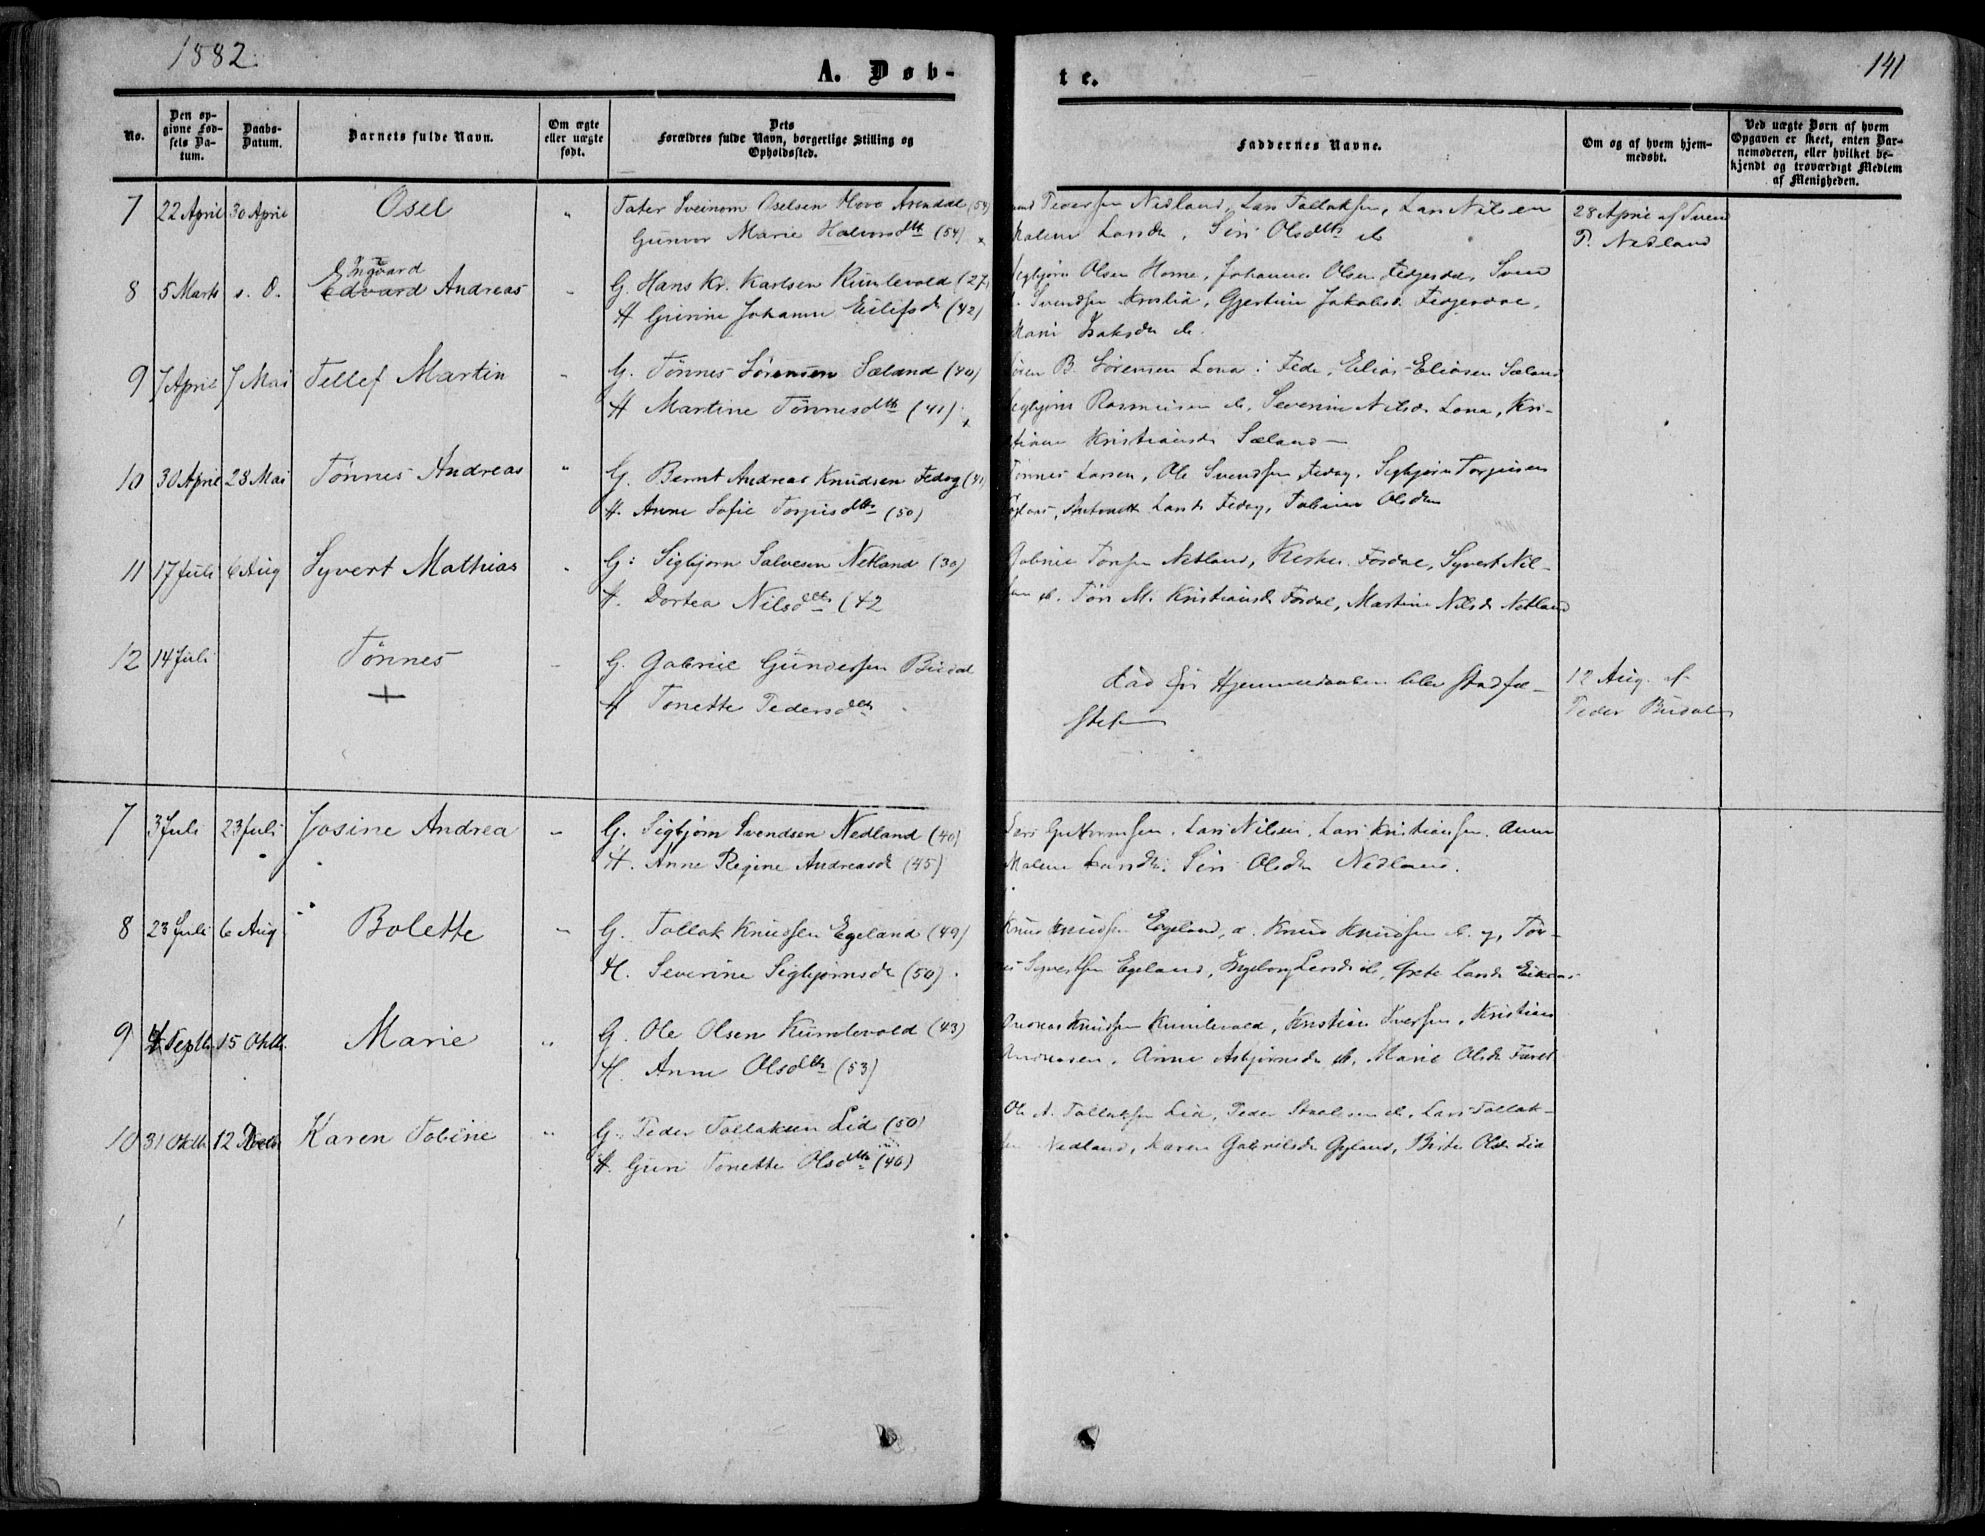 1882.
A. Døb-
te.
141
No.
Den op-
givne Fød-
sels Da-
tum.
Daabs-
Datum.
Barnets fulde Navn.
Om ægte
eller uægte
født.
Dets
Forældres fulde Navn, borgerlige Stilling og
Opholdssted.
Faddernes Navne.
Om og af hvem hjem-
medøbt.
Ved uægte Børn af hvem
Opgaven er skeet, enten Bar-
nemoderen, eller hvilket be-
kjendt og troværdigt Medlem
af Menigheden.
7 22 April 30 April Osel " Tater Sveinom Oselsen Hove Arendal (54)
Gunvor Marie Halvorsdtr (54)
Pedersen Nedland, Lars Tollaksen, Lars Nilsen
Malene Larsdr, Siri Olsdtr dr
28 April af Svend
P. Nedland
8 5 Marts s. D. Ingvard
Edvard Andreas
G. Hans Kr. Karlsen Kumlevold (27)
H Gurine Johanne Eilifsdr (42)
Sigbjørn Olsen Home, Johannes Olsen Fedjedal, Svend
Svendsen Kroslid, Gjertine Jakobsd. Fedjedal,
Mari Isaksdr
9 7 April 7 Mai Tellef Martin G. Tønnes Sørensen Sæland (40)
H Martine Tønnesdtr (41)
B. Sørensen Lona i Fede, Elias Eliasen Sæland
Rasmusen, Severine Nilsdr Lona, Kri-
stiane Kristiansdr Sæland
10 30 April 28 Mai Tønnes Andreas " G. Bernt Andreas Knudsen Fedog (41)
H. Anne Sofie Torjusdtr (50)
Tønnes Larsen, Ole Svendsen Fedog, Sigbjørn Torjusen
Antonette Larsdr Fedog, Tobine Olsdtr
11 17 Juli 6 Aug Syvert Mathias G: Sigbjørn Salvesen Netland (30)
H. Dortea Nilsdtr (42
Gabriel Tonsen Netland, Fosdal, Syvert Nil-
sen M. Kristiansdr Fosdal, Martine Nilsdr Netland
12 14 Juli Tønnes G. Gabriel Gundersen Budal
+
H Tonette Pedersdtr
død før Hjemmedaaben blev stadfæ-
stet
12 Aug. af
Peder Budal
7 3 Juli 23 Juli Josine Andrea G. Sigbjørn Svendsen Nedland (40)
H. Anne Regine Andreasd (45)
Lars Guttormsen, Lars Nilsen, Lars Kristiansen, Anne
Malene Larsdtr, Siri Olsdtr Nedland.
8 23 Juli 6 Aug Bolette G. Tollak Knudsen Egeland (49)
H. Severine Sigbjørnsdr (50)
Knud Knudsen Egeland, Knud Knudsen, Tør-
Syvertsen Egeland, Ingeborg Larsdr, Grete Larsdr
9 4 Septb. 15 Oktb. Marie " G. Ole Olsen Kumlevold (43)
H. Anne Olsdtr (53)
Andreas Knudsen Kumlevold, Kristian Iversen, Kristian
Andreasen, Anne Asbjørnsdr, Marie Olsdr
10 31 Oktb. 12 Novb. Karen Tobine " G. Peder Tollaksen Lid (50)
H. Guri Tonette Olsdtr (40)
Ole A. Tollaksen Lid, Peder, Lars Tollak-
sen Nedland, Karen Gabrielsdr Gyland, Birte Olsdr Lid